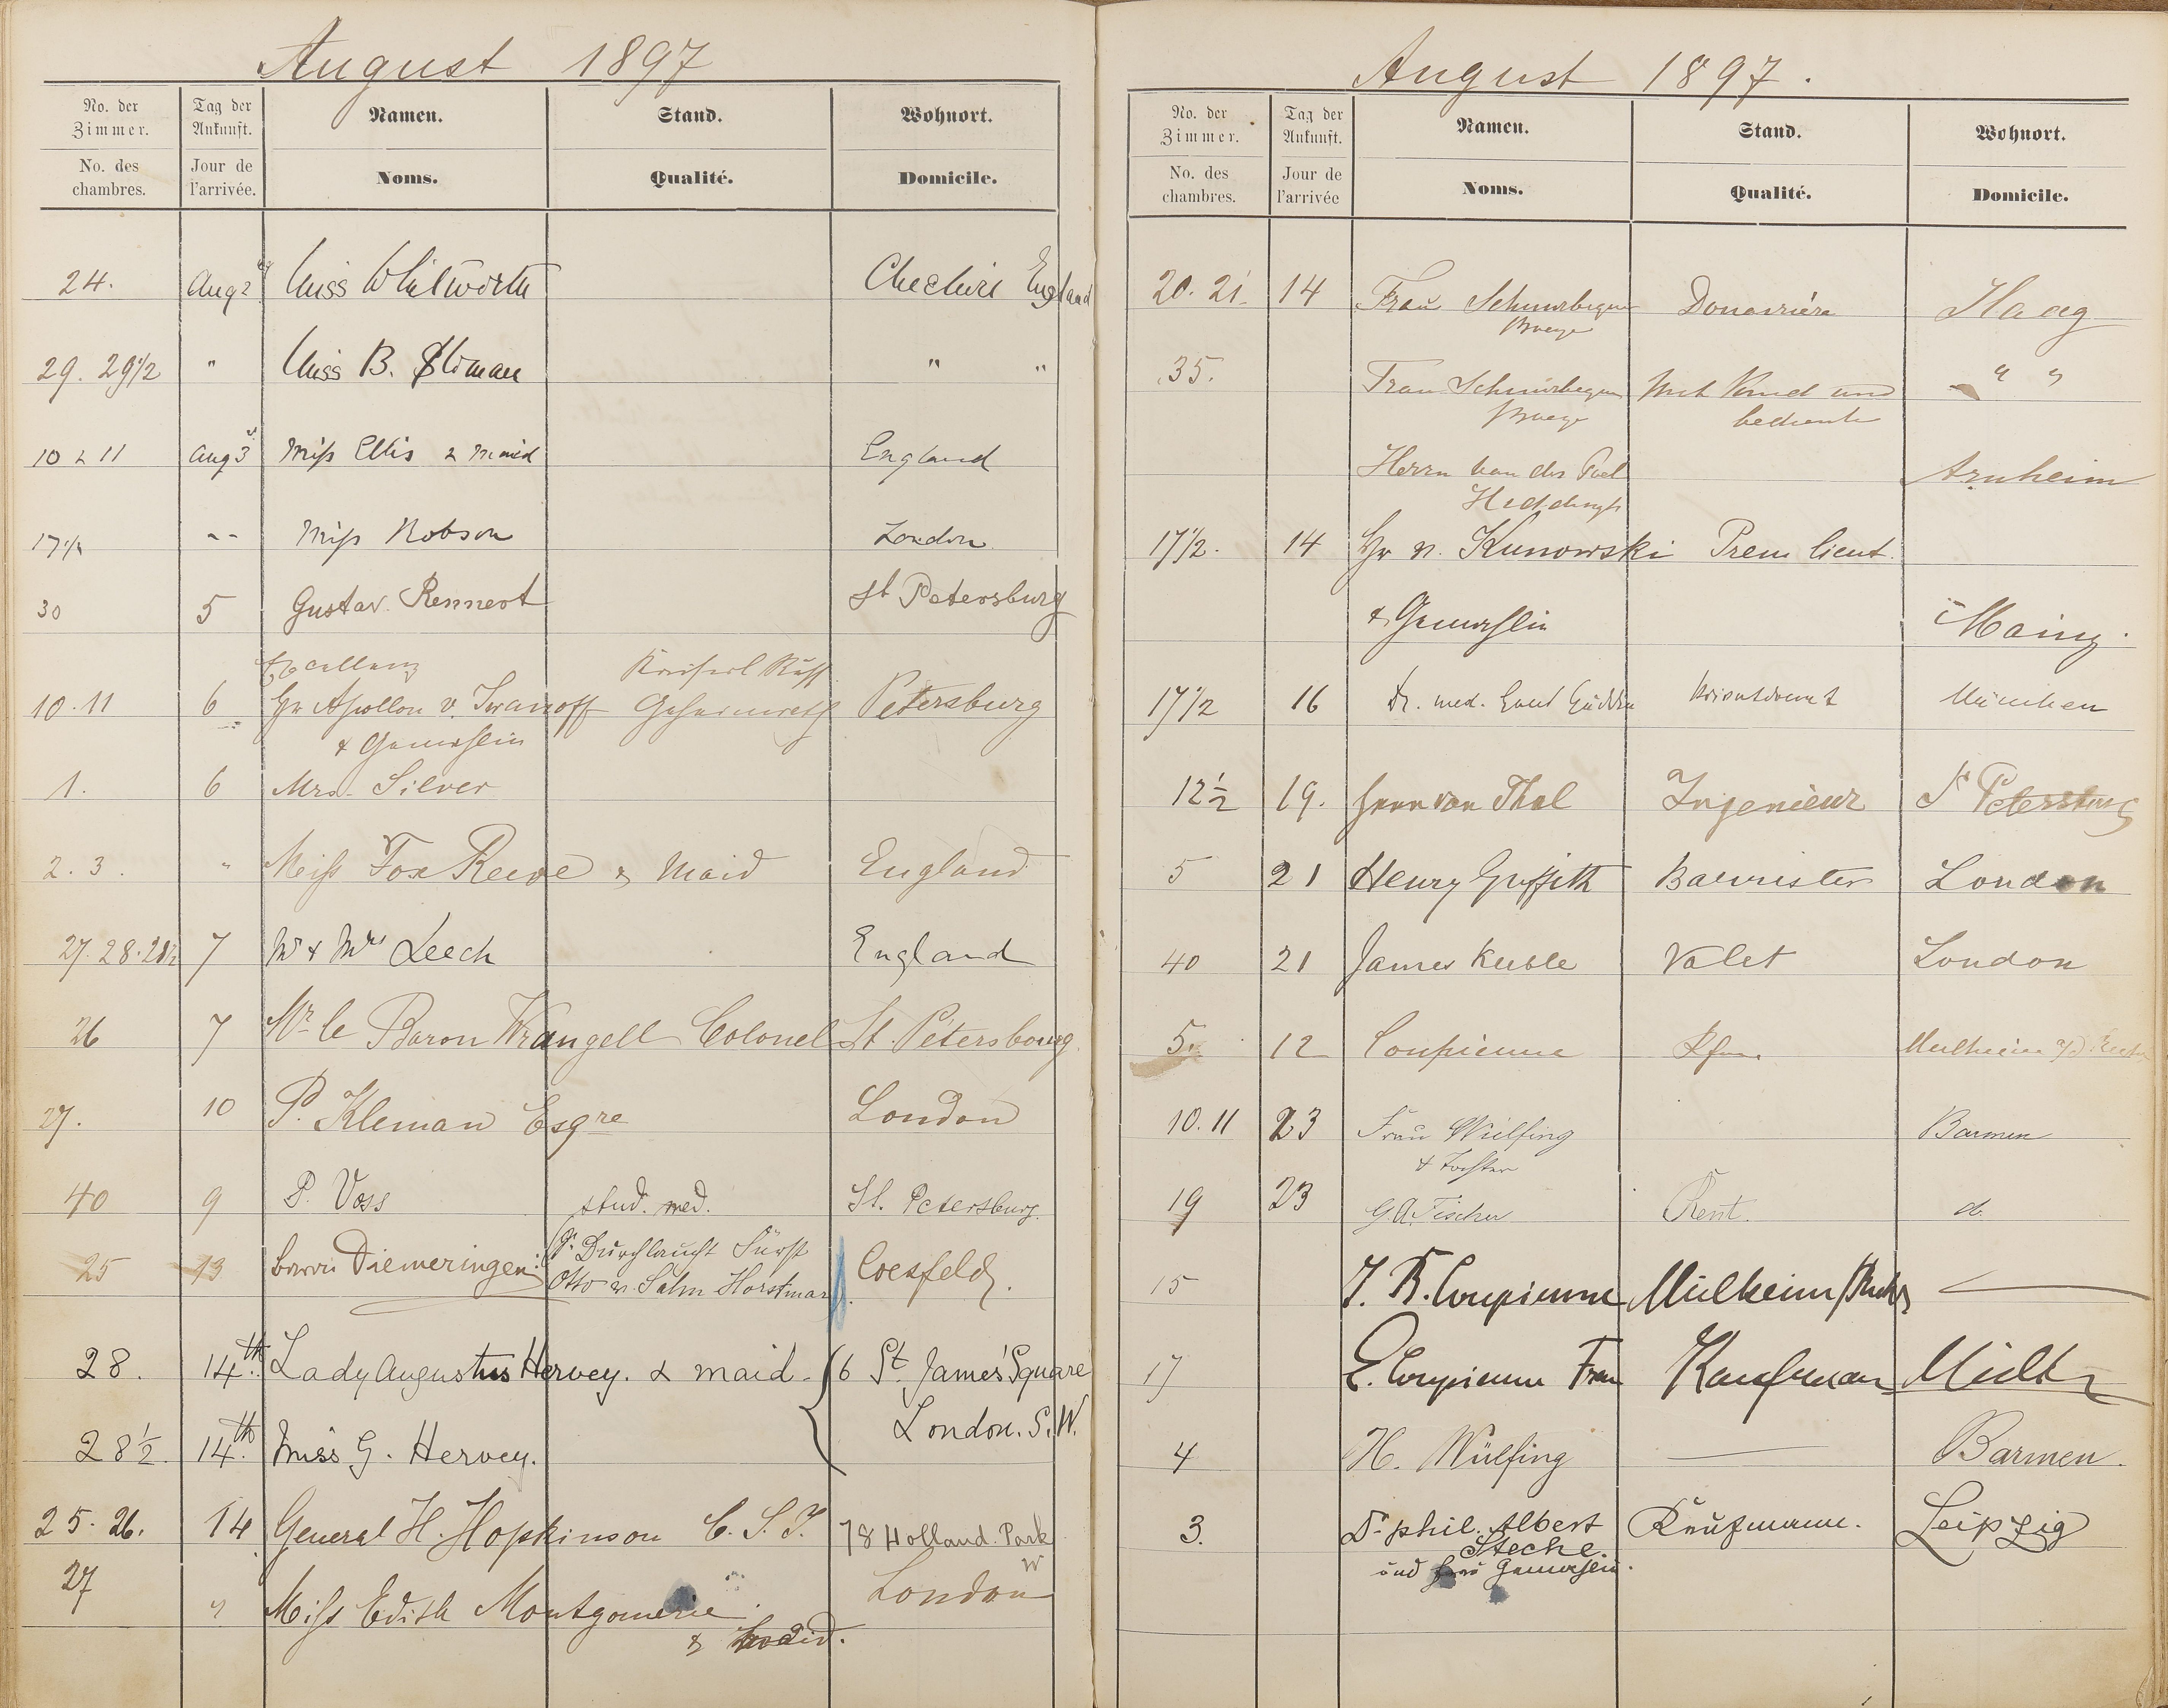 August 1897
No. der Zimmer. Tag der Ankunft. Namen. Stand. Wohnort.
No. des chambres. Jour de l'arrivée. Noms. Qualité. Domicile.
24. Aug 2 Miss Whitworth England
29. 29 1/2 " Miss B. " "
10 & 11 Aug 3 Miss Ellis & Maid England
17 1/2 -- Miss Robson London
30 5 Gustav Rennert St Petersburg
Excellenz Kaiserl Russ
10. 11 6 Hr Apollon v. Iwanoff Geheimrath Petersburg
& Gemahlin
1. 6 Mrs. Silver
2. 3. " Miss Fox Reeve & Maid England
27. 28. 28 1/2 7 Mr & Mrs Leech England
26 7 Mr le Baron Wrangell Colonel St. Petersbourg
27. 10 P. Kleman Esqre London
40 9 P. Voss stud. med. St. Petersburg.
25 13 Baron Diemeringen: Sr. Durchlaucht Fürst Coesfeld.
Otto zu Salm Horstmar.
28. 14th. Lady Augustus Hervey. & maid. 6 St. James' Square
London. S.W.
28 1/2. 14th. Miss G. Hervey.
25. 26. 14 General H. Hopkinson C. S. I. 78 Holland Park
W
27 " Miss Edith Montgomerie London
& maid.
August 1897.
No. der Zimmer. Tag der Ankunft. Namen. Stand. Wohnort.
No. des chambres. Jour de l'arrivée Noms. Qualité. Domicile.
20. 21. 14 Frau Douairière Haag
35. Frau mit Kind und " "
bediente
Herrn van der Arnheim
17 1/2. 14 Hr v. Kunowski Prem lieut.
& Gemahlin Mainz.
17 1/2 16 Dr. med. Gudden München
12 1/2 19. Herr von Thal Ingenieur St Petersburg
5 21 Henry Griffith Barrister London
40 21 James Keeble Valet London
5. 12 Coupienne Kfm. Mülheim a/d. Ruhr
10. 11 23 Frau Wülfing Barmen
& Tochter
19 23 G. A. Fischer Rent. d.
15 J. B. Coupienne Mülheim/Ruhr
17 E. Coupienne Frau Kaufmann Mülh
4 H. Wülfing Barmen.
3. Dr. phil. Albert Kaufmann. Leipzig
Steche
und Frau Gemahlin.